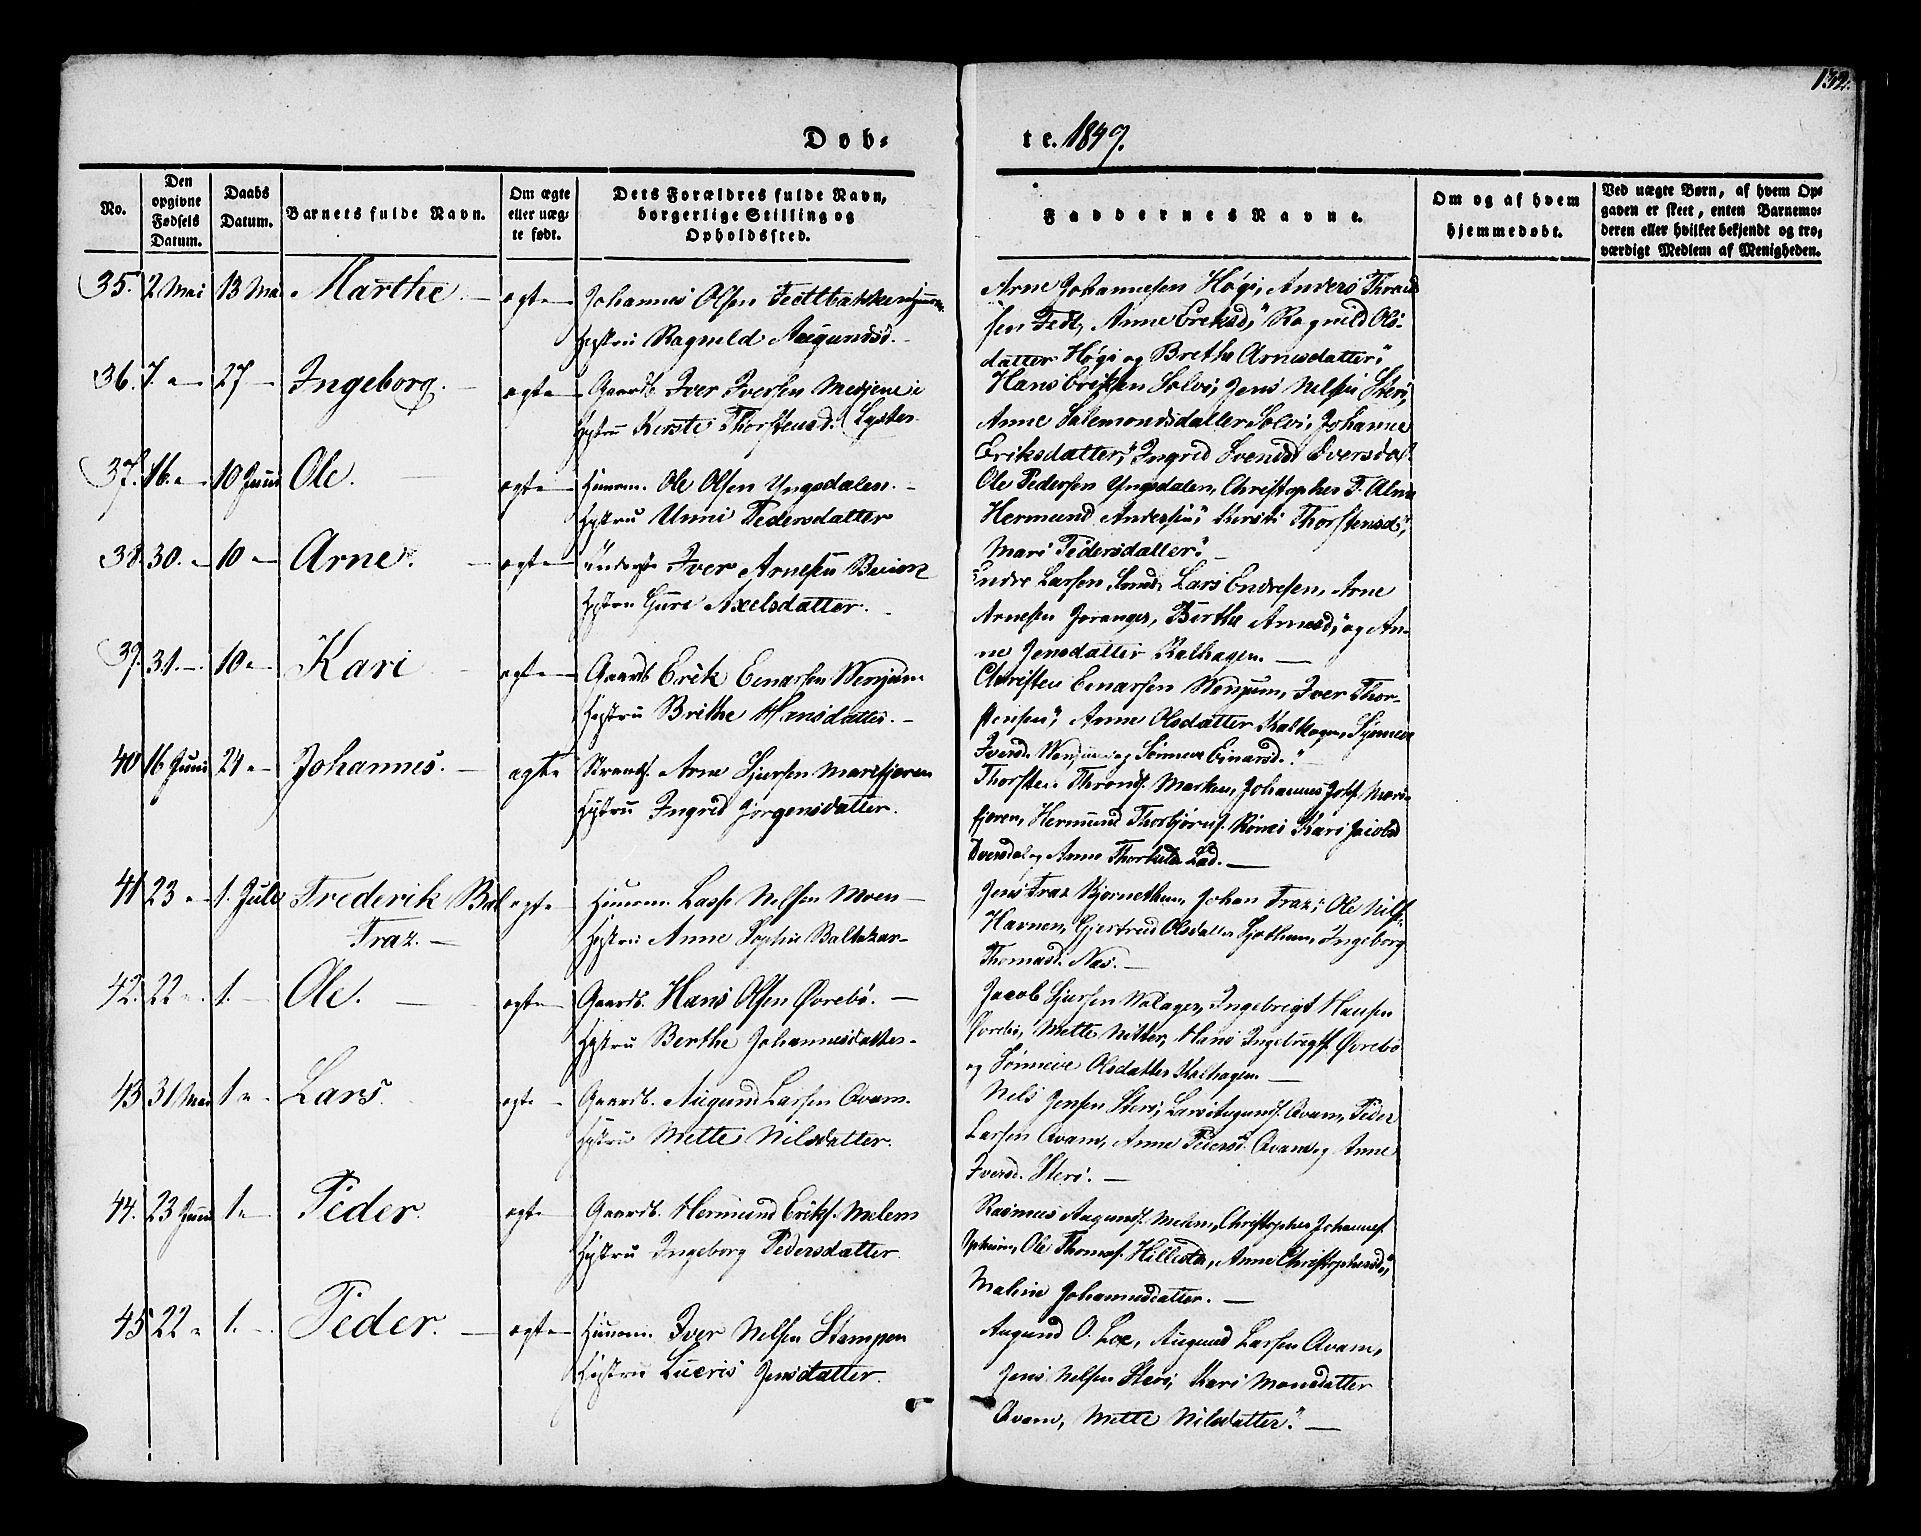 132.
Døb-
te. 1849.
No.
Den opgivne Fødsels Datum.
Daabs Datum.
Barnets fulde Navn.
Om ægte eller uæg- te født.
Dets Forældres fulde Navn, borgerlige Stilling og Opholdssted.
Faddernes Navne.
Om og af hvem hjemmedøbt.
Ved uægte Børn, af hvem Op- gaven er skeet, enten Barnemo- deren eller hvilket bekjendt og tro- værdigt Medlem af Menigheden.
35. 2 Mai 13 Mai Marthe. ægte Johannes Olsen
Hustru Ragneld Augundsd.
Arne Johannesen Høgi, Anders Thrond
sen Fedt, Anne Ereksd, Ragneld Ols-
datter Høgi og Brethe Arnesdatter
36. 7. 27 Ingeborg. ægte Gaardb. Iver Iversen i
Hustru Kerste Thorstensd. Lyster
Hans Solvi, Jens Nelsen Steri,
Anne Salemonsdatter Solvi, Johanne
Eriksdatter, Ingrid
37. 16. 10 Juni Ole. ægte Huusm. Ole Olsen Yngsdalen.
Hustru Unni Pedersdatter
Ole Pedersen Yngsdalen, Christopher P. Alme
Hermund Andersen, Kersti Thorstensd,
Mari Pedersdatter
38. 30. 10 Arne. ægte Iver Arnesen
Hustru Guri Axelsdatter.
Endre Larsen Lars Endresen, Arne
Arnesen Joranger, Berthe Arnesd, og An-
ne Jensdatter Kalhagen.
39. 31. 10 Kari ægte Gaardb. Erik Enarsen Wenjum
Hustru Brithe Hansdatter.
Christen Enarsen Wenjum, Iver Thor-
stensen, Anne Olsdatter Kalhagen, Synneve
Iversd. Wenjum og Sønneve Einarsd.
40 16 Juni 24 Johannes. ægte Strands. Arne Sjursen Marifjøren
Hustru Ingrid Jørgensdatter.
Thorsten Thronds. Marken, Johannes Marie
fjøren, Hermund Thorbjørns. Kari Jacobsd
og Anne
41 23 1. Juli Frederik Bal ægte Huusm. Lasse Nelsen Moen
Fraz. Hustru Anne Sophie Baltazar-
Jens Fraz Johan Fraz, Ole Nils.
Havnen, Gjertrud Olsdatter Ingeborg
Thomasd. Næs.
42. 22 1. Ole. ægte Gaardb. Hans Olsen Øvrebø.
Hustru Berthe Johannesdatter
Jacob Sjursen Ingebregt Hansen
Øvrebø, Mette Nitter, Hans Ingebregts. Øvrebø
og Sønneve Olsdatter Kalhagen
43 31 Mai 1 Lars. ægte Gaardb. Augund Larsen Qvam.
Hustru Mette Nilsdatter.
Nils Jensen Steri, Lars Augunds. Qvam, Peder
Larsen Qvam, Anne Pedersd. Qvam og Anne
Iversd. Steri.
44. 23 Juni 1 Peder. ægte Gaardb. Hermund Eriks. Melem
Hustru Ingeborg Pedersdatter
Rasmus Augunds. Melem, Christopher Johannes.
Opheim, Ole Thomas. Hillestad, Anne Christophersd.
Maline Johannesdatter.
45 22 1. Peder. ægte Huusm. Iver Nelsen Stampen
Hustru Lucris Jensdatter.
Augund O. Loe, Augund Larsen Qvam,
Jens Nelsen Steri, Kari Monsdatter
Qvam, Mette Nilsdatter.